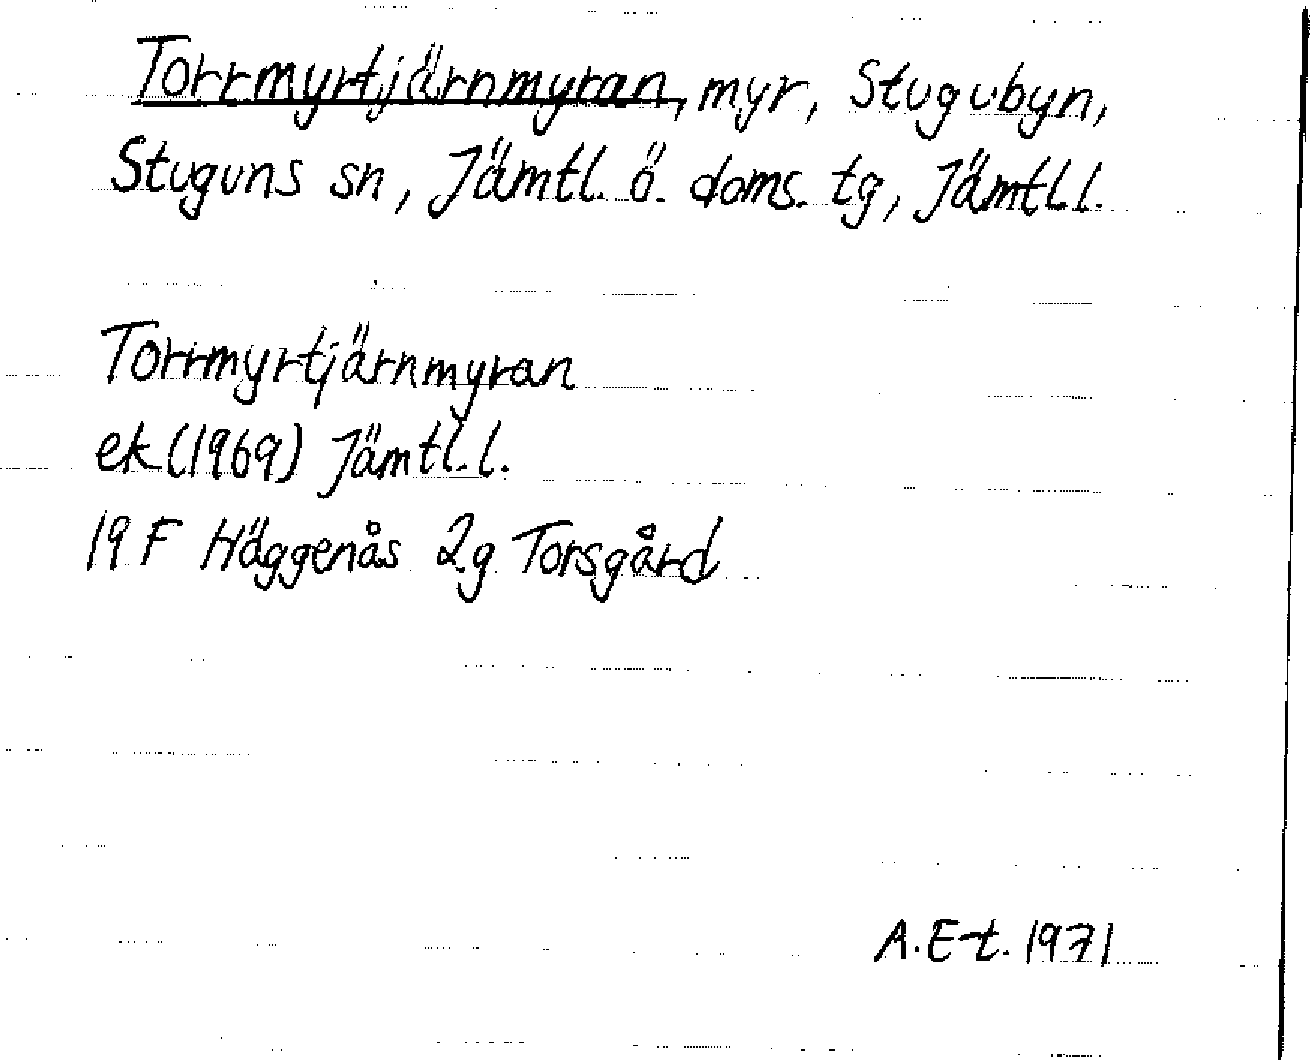 Torrmyrtjärnmyran, myr, Stugubyn,
Stuguns sn, Jämtl. ö. doms. tg, Jämtl.l.
Torrmyrtjärnmyran
ek (1969) Jämtl.l.
19 F Häggenås 2g Torsgård
A.E-t. 1971